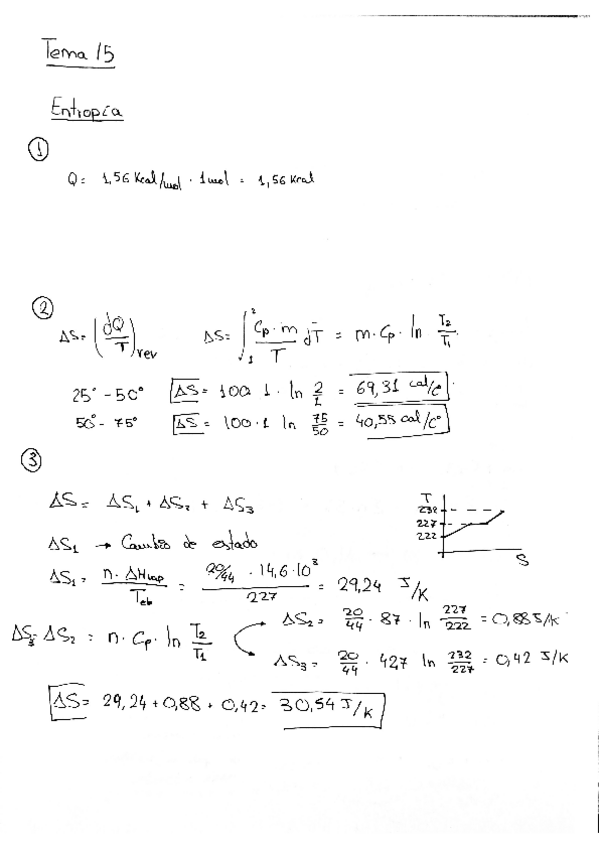 Tema 15
Entropía
①
Q = 1,56 Kcal/mol · 1 mol = 1,56 Kcal
②
ΔS = (dQ/T)rev    ΔS = ∫₁² (Cp · m / T) dT = m · Cp · ln T₂/T₁
25° - 50°  ΔS = 100 · 1 · ln 2/1 = 69,31 cal/c°
50° - 75°  ΔS = 100 · 1 ln 75/50 = 40,55 cal/c°
③
ΔS = ΔS₁ + ΔS₂ + ΔS₃
T
232
227
222
S
ΔS₁ → Cambio de estado
ΔS₁ = n · ΔHvap / Teb = 20/44 · 14,6 · 10³ / 227 = 29,24 J/K
ΔS₃ ΔS₂ = n · Cp · ln T₂/T₁
ΔS₂ = 20/44 · 87 · ln 227/222 = 0,88 J/K
ΔS₃ = 20/44 · 427 ln 232/227 = 0,42 J/K
ΔS = 29,24 + 0,88 + 0,42 = 30,54 J/K